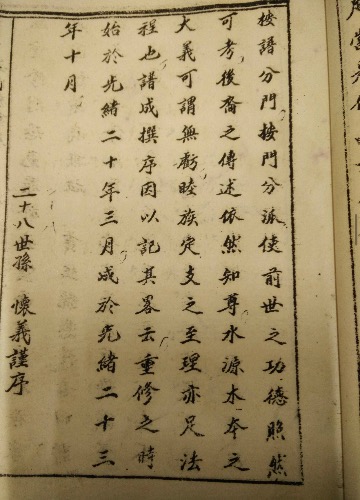 按語分門按門分派使前世之功德照然
可考後裔之傳述依然知尊水源木本之
大義可謂無虧睦族定支之至理亦足法
程也譜成撰序因以記其畧云重修之時
始於光緒二十年三月成於光緒二十三
年十月
二十八世孫 懷義謹序